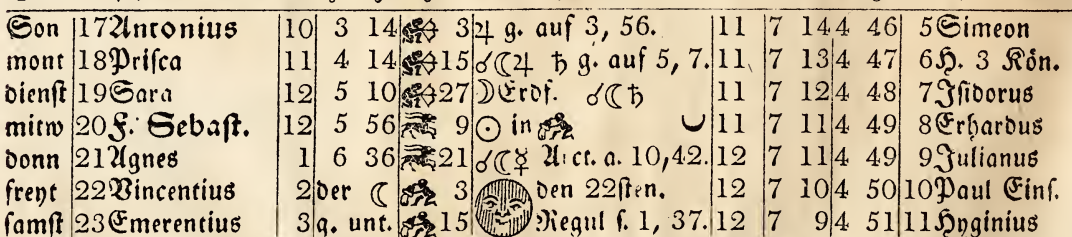 Son 17 Antonius 10 3 14 3 ♃ g. auf 3, 56. 11 7 14 4 46 5 Simeon
mont 18 Priſca 11 4 14 15 ☌☾♃ ♄ g. auf 5, 7. 11 7 13 4 47 6 H. 3 Kön.
dienſt 19 Sara 12 5 10 27 ☽ Erdf. ☌☾♄ 11 7 12 4 48 7 Iſidorus
mitw 20 F. Sebaſt. 12 5 56 9 ☉ in 11 7 11 4 49 8 Erhardus
donn 21 Agnes 1 6 36 21 ☌☾☿ Arct. a. 10,42. 12 7 11 4 49 9 Julianus
freyt 22 Vincentius 2 der ☾ 3 den 22ſten. 12 7 10 4 50 10 Paul Einſ.
ſamſt 23 Emerentius 3 g. unt. 15 Regul ſ. 1, 37. 12 7 9 4 51 11 Hyginius